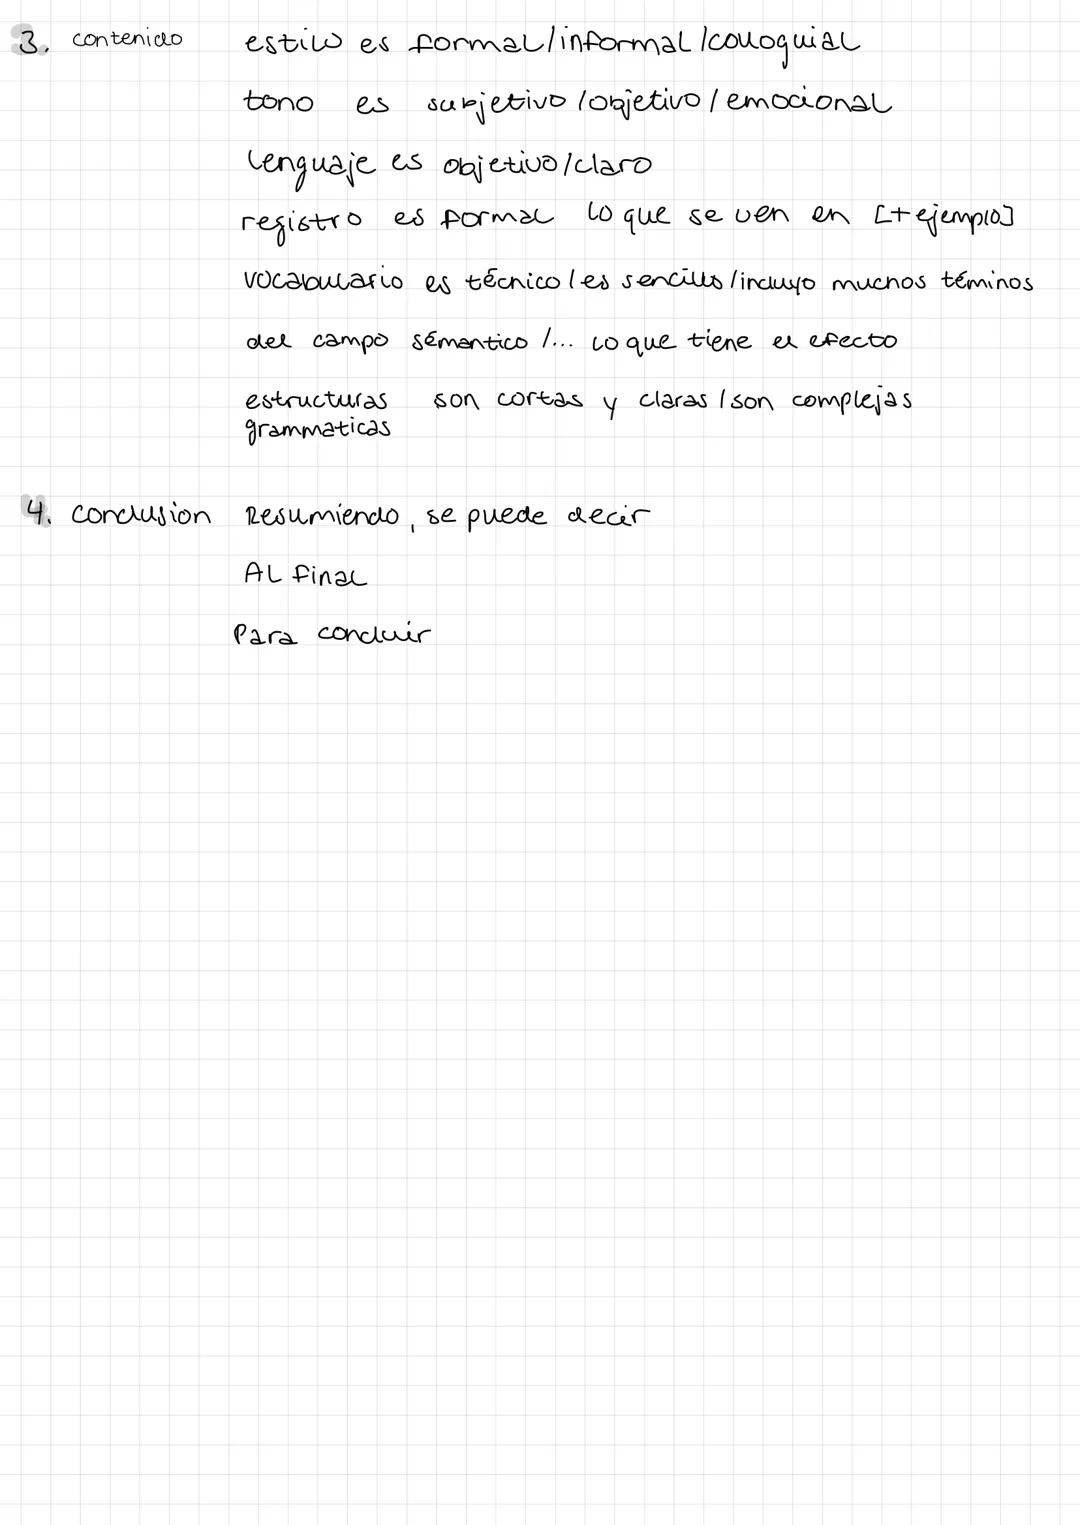 3. contenido estilo es formal/informal/colloquial
tono es subjetivo/objetivo/emocional
lenguaje es objetivo/claro
registro es formal lo que se ven en [+ejemplo]
vocabulario es técnico/es sencillo/incluyo muchos téminos
del campo sémantico /... lo que tiene el efecto
estructuras son cortas y claras/son complejas
grammaticas
4. conclusion Resumiendo, se puede decir
Al final
Para concluir